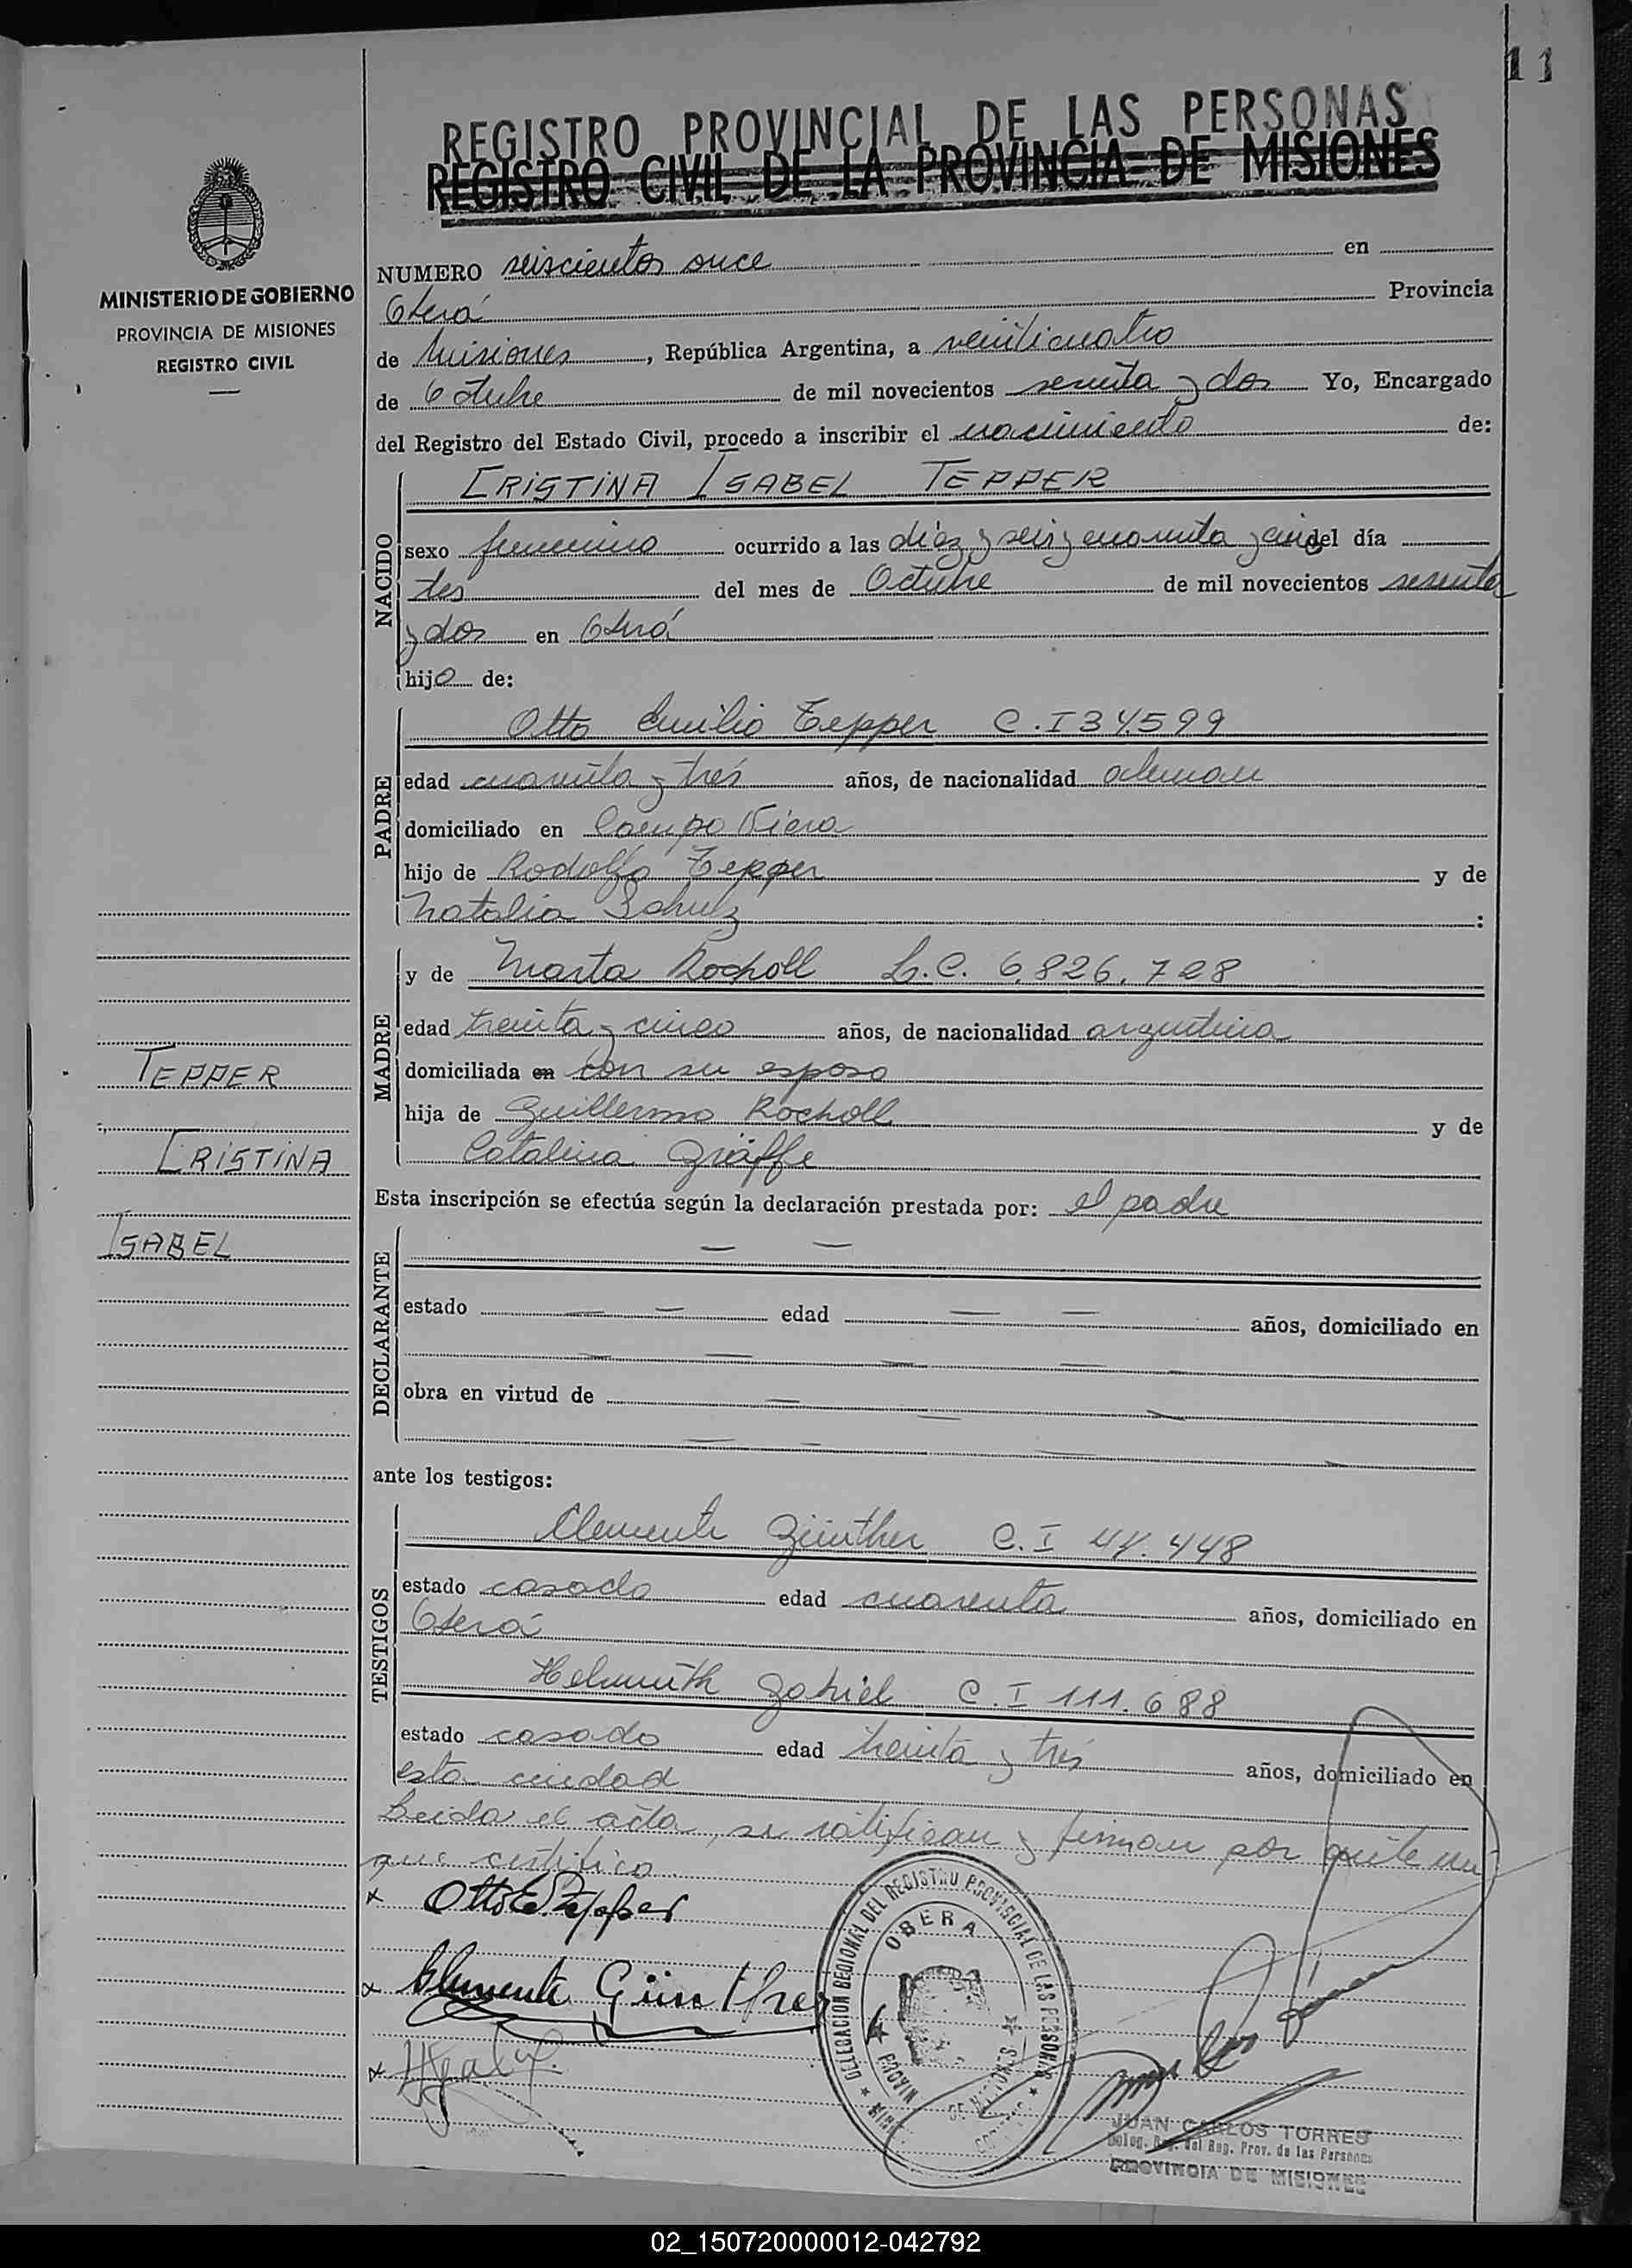 11
REGISTRO PROVINCIAL DE LAS PERSONAS
REGISTRO CIVIL DE LA PROVINCIA DE MISIONES
MINISTERIO DE GOBIERNO
PROVINCIA DE MISIONES
REGISTRO CIVIL
NUMERO seiscientos once en
Oberá Provincia
de Misiones, República Argentina, a veinticuatro
de Octubre de mil novecientos sesenta y dos Yo, Encargado
del Registro del Estado Civil, procedo a inscribir el nacimiento de:
NACIDO
CRISTINA ISABEL TEPPER
sexo femenino ocurrido a las diez y seis y cuarenta y cinco del día
tres del mes de Octubre de mil novecientos sesenta
y dos en Oberá
hija de:
PADRE
Otto Emilio Tepper C.I 34.599
edad cuarenta y tres años, de nacionalidad aleman
domiciliado en Campo Viera
hijo de Rodolfo Tepper y de
Natalia Schulz :
MADRE
y de Marta Rocholl L.C. 6.826.728
edad treinta y cinco años, de nacionalidad argentina
domiciliada en con su esposo
hija de Guillermo Rocholl y de
Catalina Gräffe
TEPPER
CRISTINA
ISABEL
Esta inscripción se efectúa según la declaración prestada por: el padre
DECLARANTE
estado edad años, domiciliado en
obra en virtud de
ante los testigos:
TESTIGOS
Clemente Günther C.I 44.448
estado casado edad cuarenta años, domiciliado en
Oberá
Helmuth Gabriel C.I 111.688
estado casado edad treinta y tres años, domiciliado en
esta ciudad
Leida el acta, se ratifican y firman por ante mi
que certifico
x Otto E. Tepper
x Clemente Günther
x
DELEGACION REGIONAL DEL REGISTRO PROVINCIAL DE LAS PERSONAS
OBERA
PROVIN DE MISIONES
JUAN CARLOS TORRES
Deleg. Reg. del Reg. Prov. de las Personas
PROVINCIA DE MISIONES
02_150720000012-042792